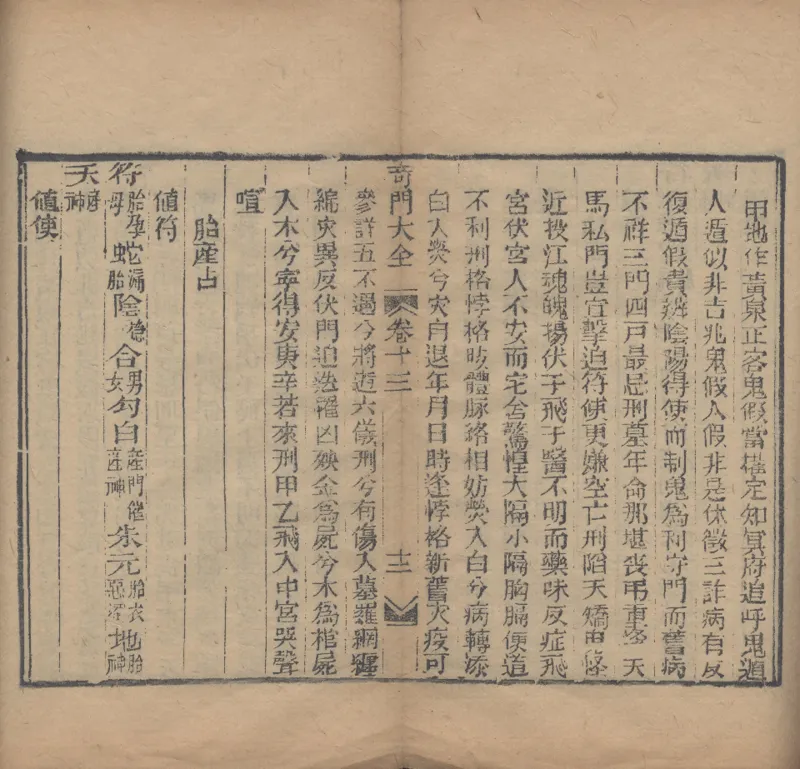 甲地作黃泉正客鬼假當權定知冥府追呼鬼遁
人遁似非吉兆鬼假人假非是休徵三詐病有反
復遁假貴辨陰陽得使而制鬼為利守門而舊病
不祥三門四戶最忌刑墓年命那堪喪弔重逢天
馬私門豈宜擊迫符使更嫌空亡刑陷天矯
近投江魂魄揚伏于飛于醫不明而藥味反症飛
宮伏宮人不安而宅舍驚惶大隔小隔胸膈便道
不利刑格悖格肢體脉絡相妨熒入白兮病轉添
白入熒兮灾自退年月日時逢悖格新舊灾疫可
奇門大全 卷十三 十二
參詳五不遇兮將逝六儀刑兮有傷入墓羅網纏
綿灾異反伏門迫迭罹凶殃金為屍兮木為棺屍
入木兮寧得安庚辛若來刑甲乙飛入中宮哭聲
喧
胎產占
值符
符胎孕母蛇漏胎陰穩合男女勾白產門催產神朱元胎衣惡濁地胎神
天產神
值使